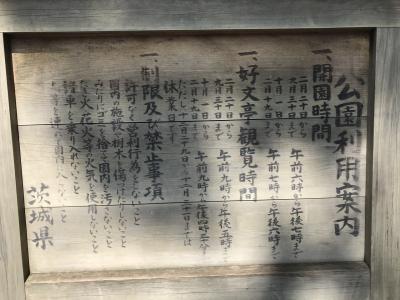 公園利用案内
一、開園時間
二月二十日から
九月三十日まで
午前六時から午後七時まで
十月一日から
二月十九日まで
午前七時から午後六時まで
一、好文亭観覧時間
二月二十日から
九月三十日まで
午前九時から午後五時まで
十月一日から
二月十九日まで
午前九時から午後四時三十分
ただし十二月二十九日から十二月三十一日までは
休業日です
一、制限及び禁止事項
許可なく営利行為をしないこと
園内の施設、樹木を傷つけたりしないこと
みだりにゴミを捨て園内を汚さないこと
たき火、花火等の火気を使用しないこと
諸車を乗り入れないこと
茨城県